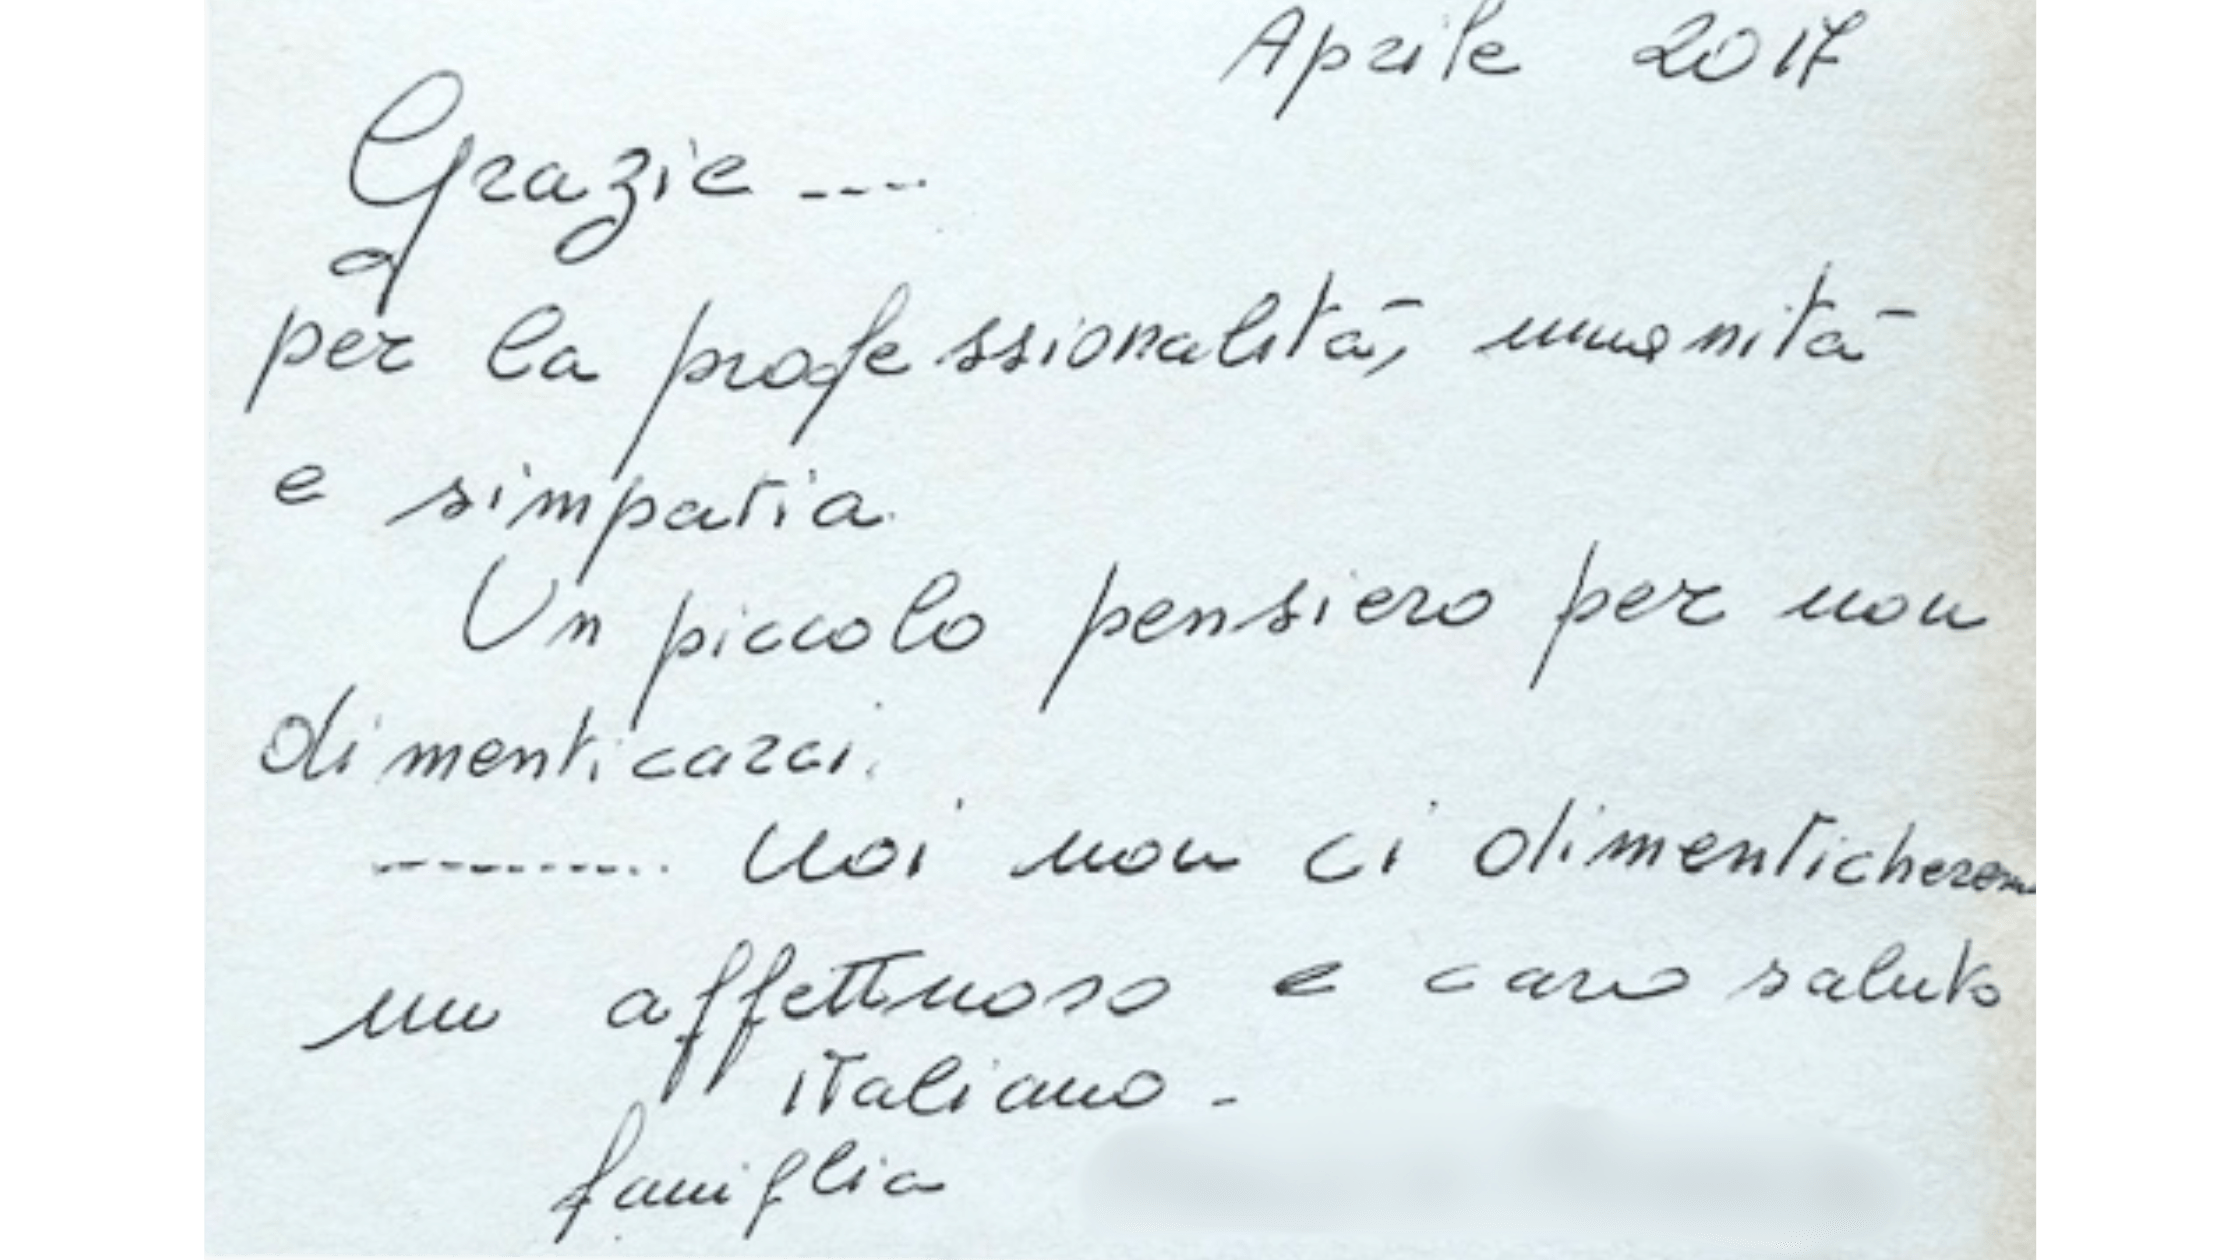 Aprile 2017
Grazie ----
per la professionalità, umanità
e simpatia.
Un piccolo pensiero per non
dimenticarci.
--------.. Noi non ci dimenticherem
un affettuoso e caro saluto
italiano -
famiglia